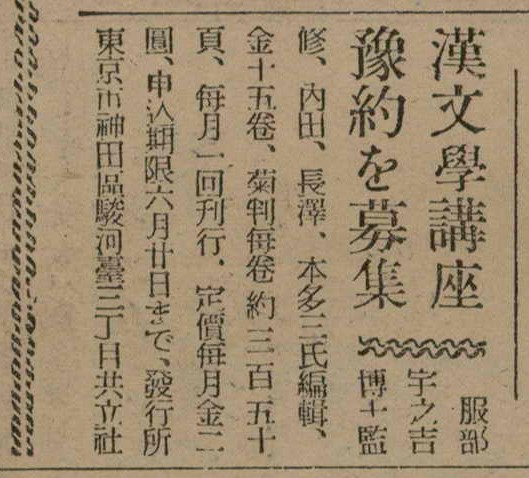 漢文學講座
豫約を募集
服部
宇之吉
博士監
修、內田、長澤、本多三氏編輯、
金十五卷、菊判每卷約三百五十
頁、每月一回刊行、定價每月金二
圓、申込期限六月廿日まで、發行所
東京市神田區駿河臺三丁目共立社